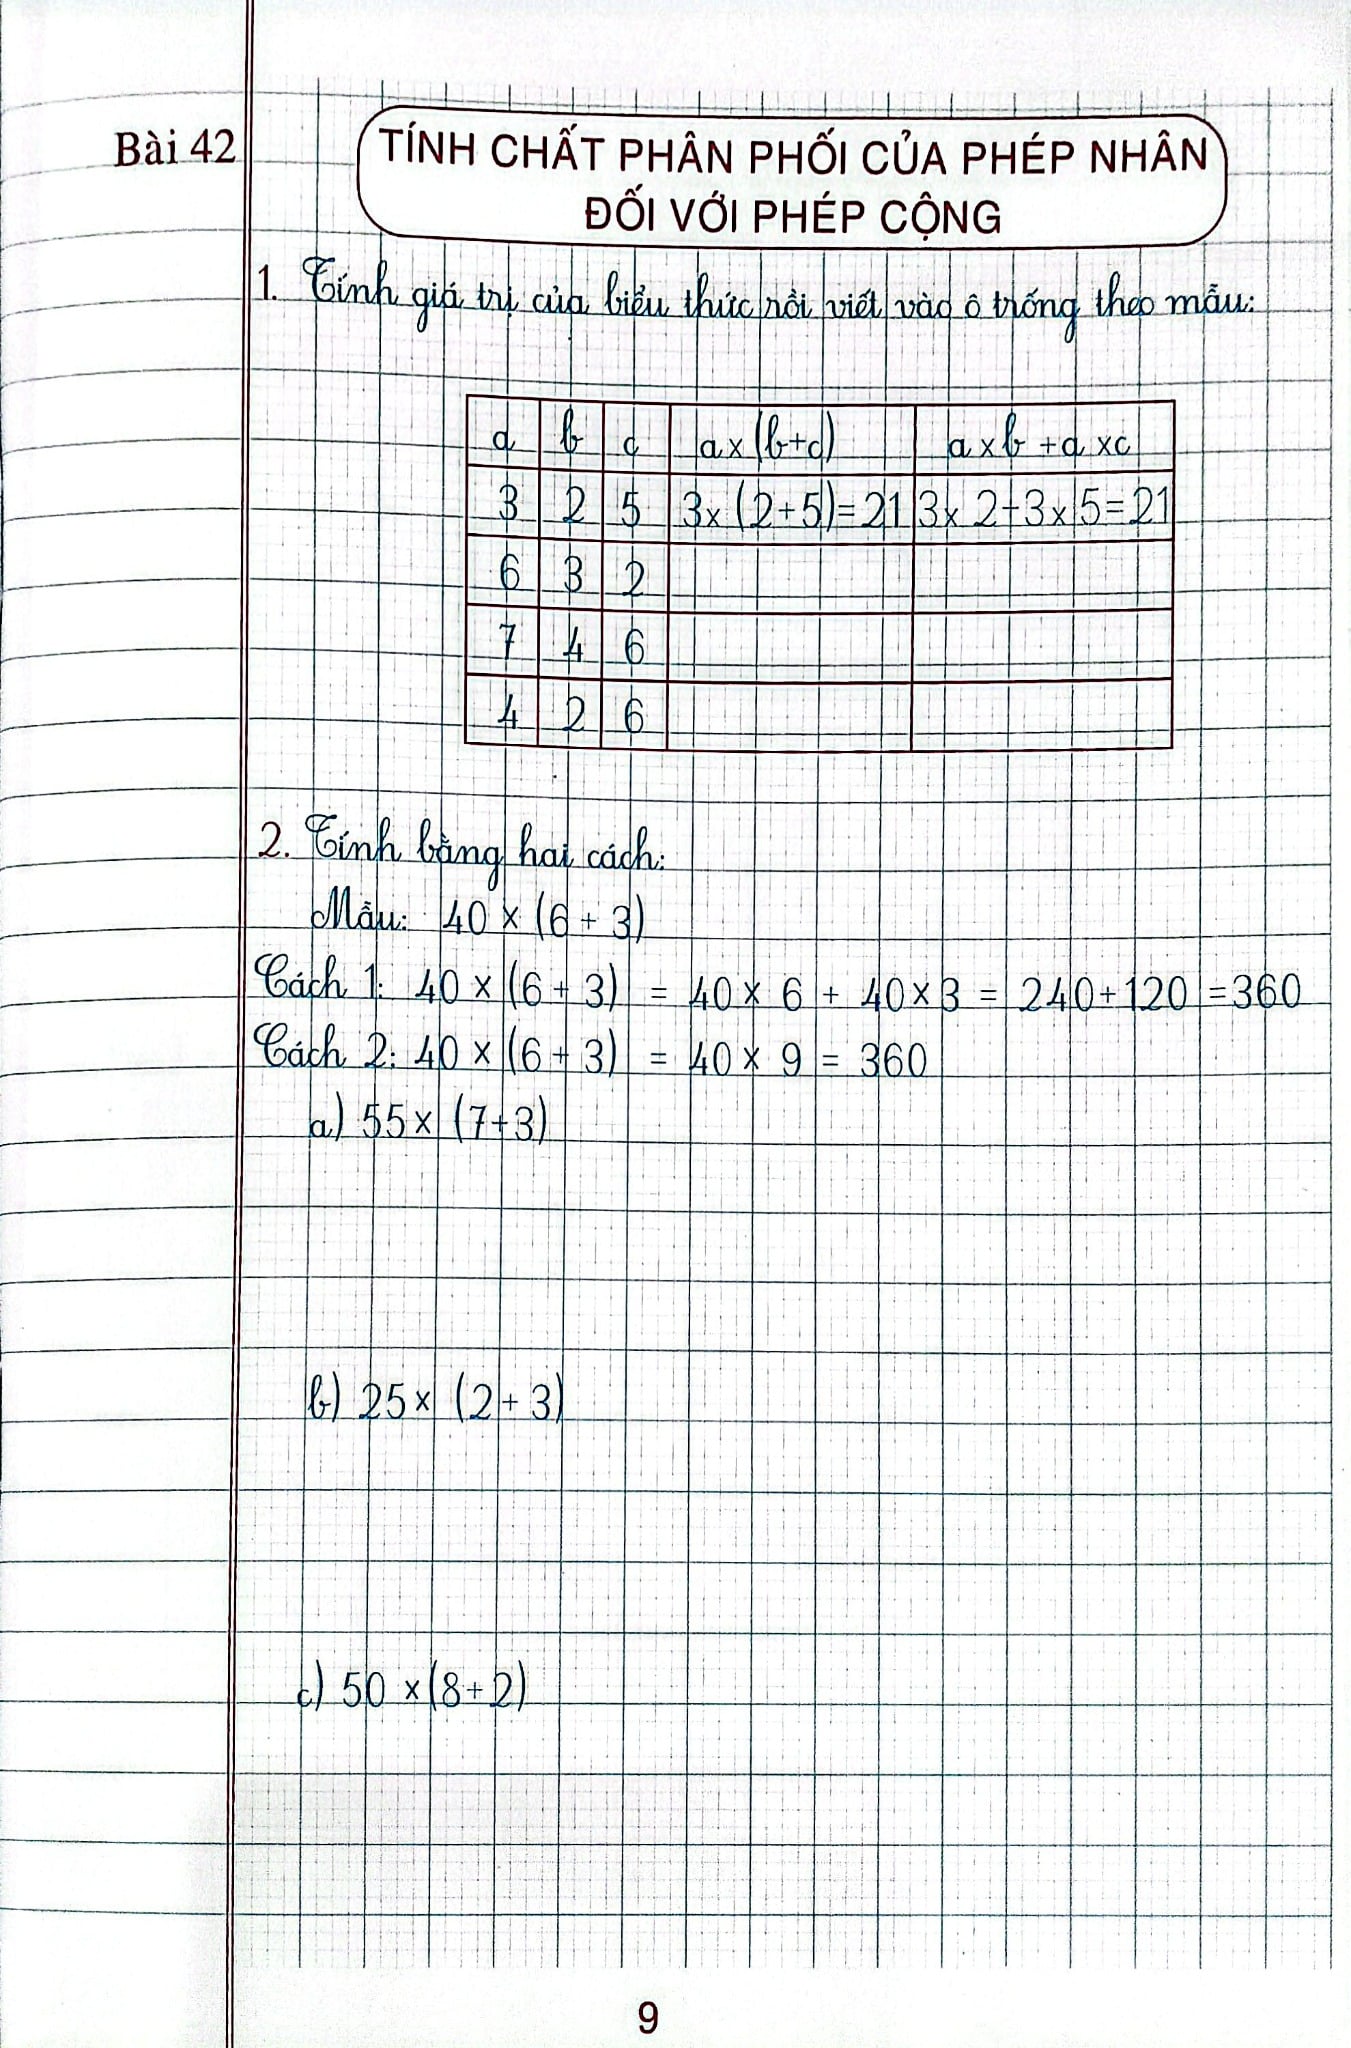 Bài 42
TÍNH CHẤT PHÂN PHỐI CỦA PHÉP NHÂN
ĐỐI VỚI PHÉP CỘNG
1. Tính giá trị của biểu thức rồi viết vào ô trống theo mẫu:
a b c a x (b+c) a x b + a x c
3 2 5 3 x (2+5) = 21 3 x 2 + 3 x 5 = 21
6 3 2
7 4 6
4 2 6
2. Tính bằng hai cách:
Mẫu: 40 x (6 + 3)
Cách 1: 40 x (6 + 3) = 40 x 6 + 40 x 3 = 240 + 120 = 360
Cách 2: 40 x (6 + 3) = 40 x 9 = 360
a) 55 x (7+3)
b) 25 x (2 + 3)
c) 50 x (8+2)
9